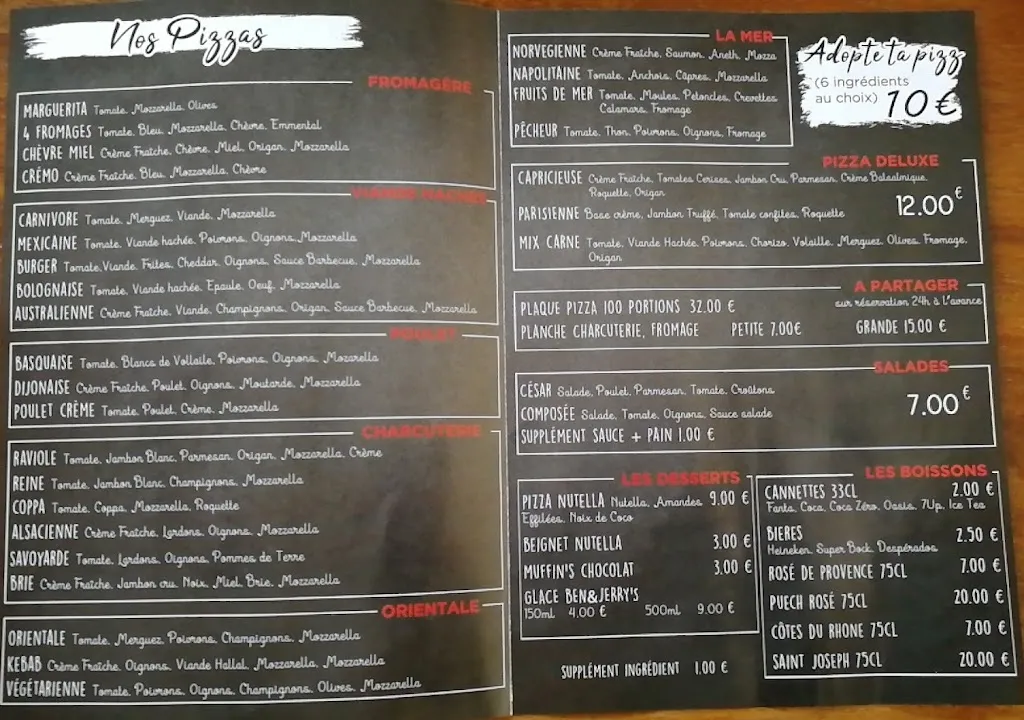 Nos Pizzas
FROMAGÈRE
MARGUERITA Tomate, Mozzarella, Olives
4 FROMAGES Tomate, Bleu, Mozzarella, Chèvre, Emmental
CHÈVRE MIEL Crème Fraîche, Chèvre, Miel, Origan, Mozzarella
CRÉMO Crème Fraîche, Bleu, Mozzarella, Chèvre
VIANDE HACHÉE
CARNIVORE Tomate, Merguez, Viande, Mozzarella
MEXICAINE Tomate, Viande hachée, Poivrons, Oignons, Mozzarella
BURGER Tomate, Viande, Frites, Cheddar, Oignons, Sauce Barbecue, Mozzarella
BOLOGNAISE Tomate, Viande hachée, Epaule, Oeuf, Mozzarella
AUSTRALIENNE Crème Fraîche, Viande, Champignons, Origan, Sauce Barbecue, Mozzarella
POULET
BASQUAISE Tomate, Blancs de Vollaile, Poivrons, Oignons, Mozarella
DIJONAISE Crème Fraîche, Poulet, Oignons, Moutarde, Mozzarella
POULET CRÈME Tomate, Poulet, Crème, Mozzarella
CHARCUTERIE
RAVIOLE Tomate, Jambon Blanc, Parmesan, Origan, Mozzarella, Crème
REINE Tomate, Jambon Blanc, Champignons, Mozzarella
COPPA Tomate, Coppa, Mozzarella, Roquette
ALSACIENNE Crème Fraîche, Lardons, Oignons, Mozzarella
SAVOYARDE Tomate, Lardons, Oignons, Pommes de Terre
BRIE Crème Fraîche, Jambon cru, Noix, Miel, Brie, Mozzarella
ORIENTALE
ORIENTALE Tomate, Merguez, Poivrons, Champignons, Mozzarella
KEBAB Crème Fraîche, Oignons, Viande Hallal, Mozzarella, Mozzarella
VÉGÉTARIENNE Tomate, Poivrons, Oignons, Champignons, Olives, Mozzarella
LA MER
NORVEGIENNE Crème Fraîche, Saumon, Aneth, Mozza
NAPOLITAINE Tomate, Anchois, Câpres, Mozzarella
FRUITS DE MER Tomate, Moules, Petoncles, Crevettes
Calamars, Fromage
PÊCHEUR Tomate, Thon, Poivrons, Oignons, Fromage
Adopte ta pizz
(6 ingrédients
au choix) 10 €
PIZZA DELUXE
CAPRICIEUSE Crème Fraîche, Tomates Cerises, Jambon Cru, Parmesan, Crème Balsalmique,
Roquette, Origan
PARISIENNE Base crème, Jambon Truffé, Tomate confites, Roquette
12.00 €
MIX CARNE Tomate, Viande Hachée, Poivrons, Chorizo, Volaille, Merguez, Olives, Fromage,
Origan
A PARTAGER
sur réservation 24h à l'avance
PLAQUE PIZZA 100 PORTIONS 32.00 €
PLANCHE CHARCUTERIE, FROMAGE PETITE 7.00€ GRANDE 15.00 €
SALADES
CÉSAR Salade, Poulet, Parmesan, Tomate, Croûtons
COMPOSÉE Salade, Tomate, Oignons, Sauce salade
7.00 €
SUPPLÉMENT SAUCE + PAIN 1.00 €
LES DESSERTS
PIZZA NUTELLA Nutella, Amandes 9.00 €
Effilées, Noix de Coco
BEIGNET NUTELLA 3.00 €
MUFFIN'S CHOCOLAT 3.00 €
GLACE BEN&JERRY'S
150ml 4.00 € 500ml 9.00 €
SUPPLÉMENT INGRÉDIENT 1.00 €
LES BOISSONS
CANNETTES 33CL 2.00 €
Fanta, Coca, Coca Zéro, Oasis, 7Up, Ice Tea
BIERES 2.50 €
Heineken, Super Bock, Despérados
ROSÉ DE PROVENCE 75CL 7.00 €
PUECH ROSÉ 75CL 20.00 €
CÔTES DU RHONE 75CL 7.00 €
SAINT JOSEPH 75CL 20.00 €